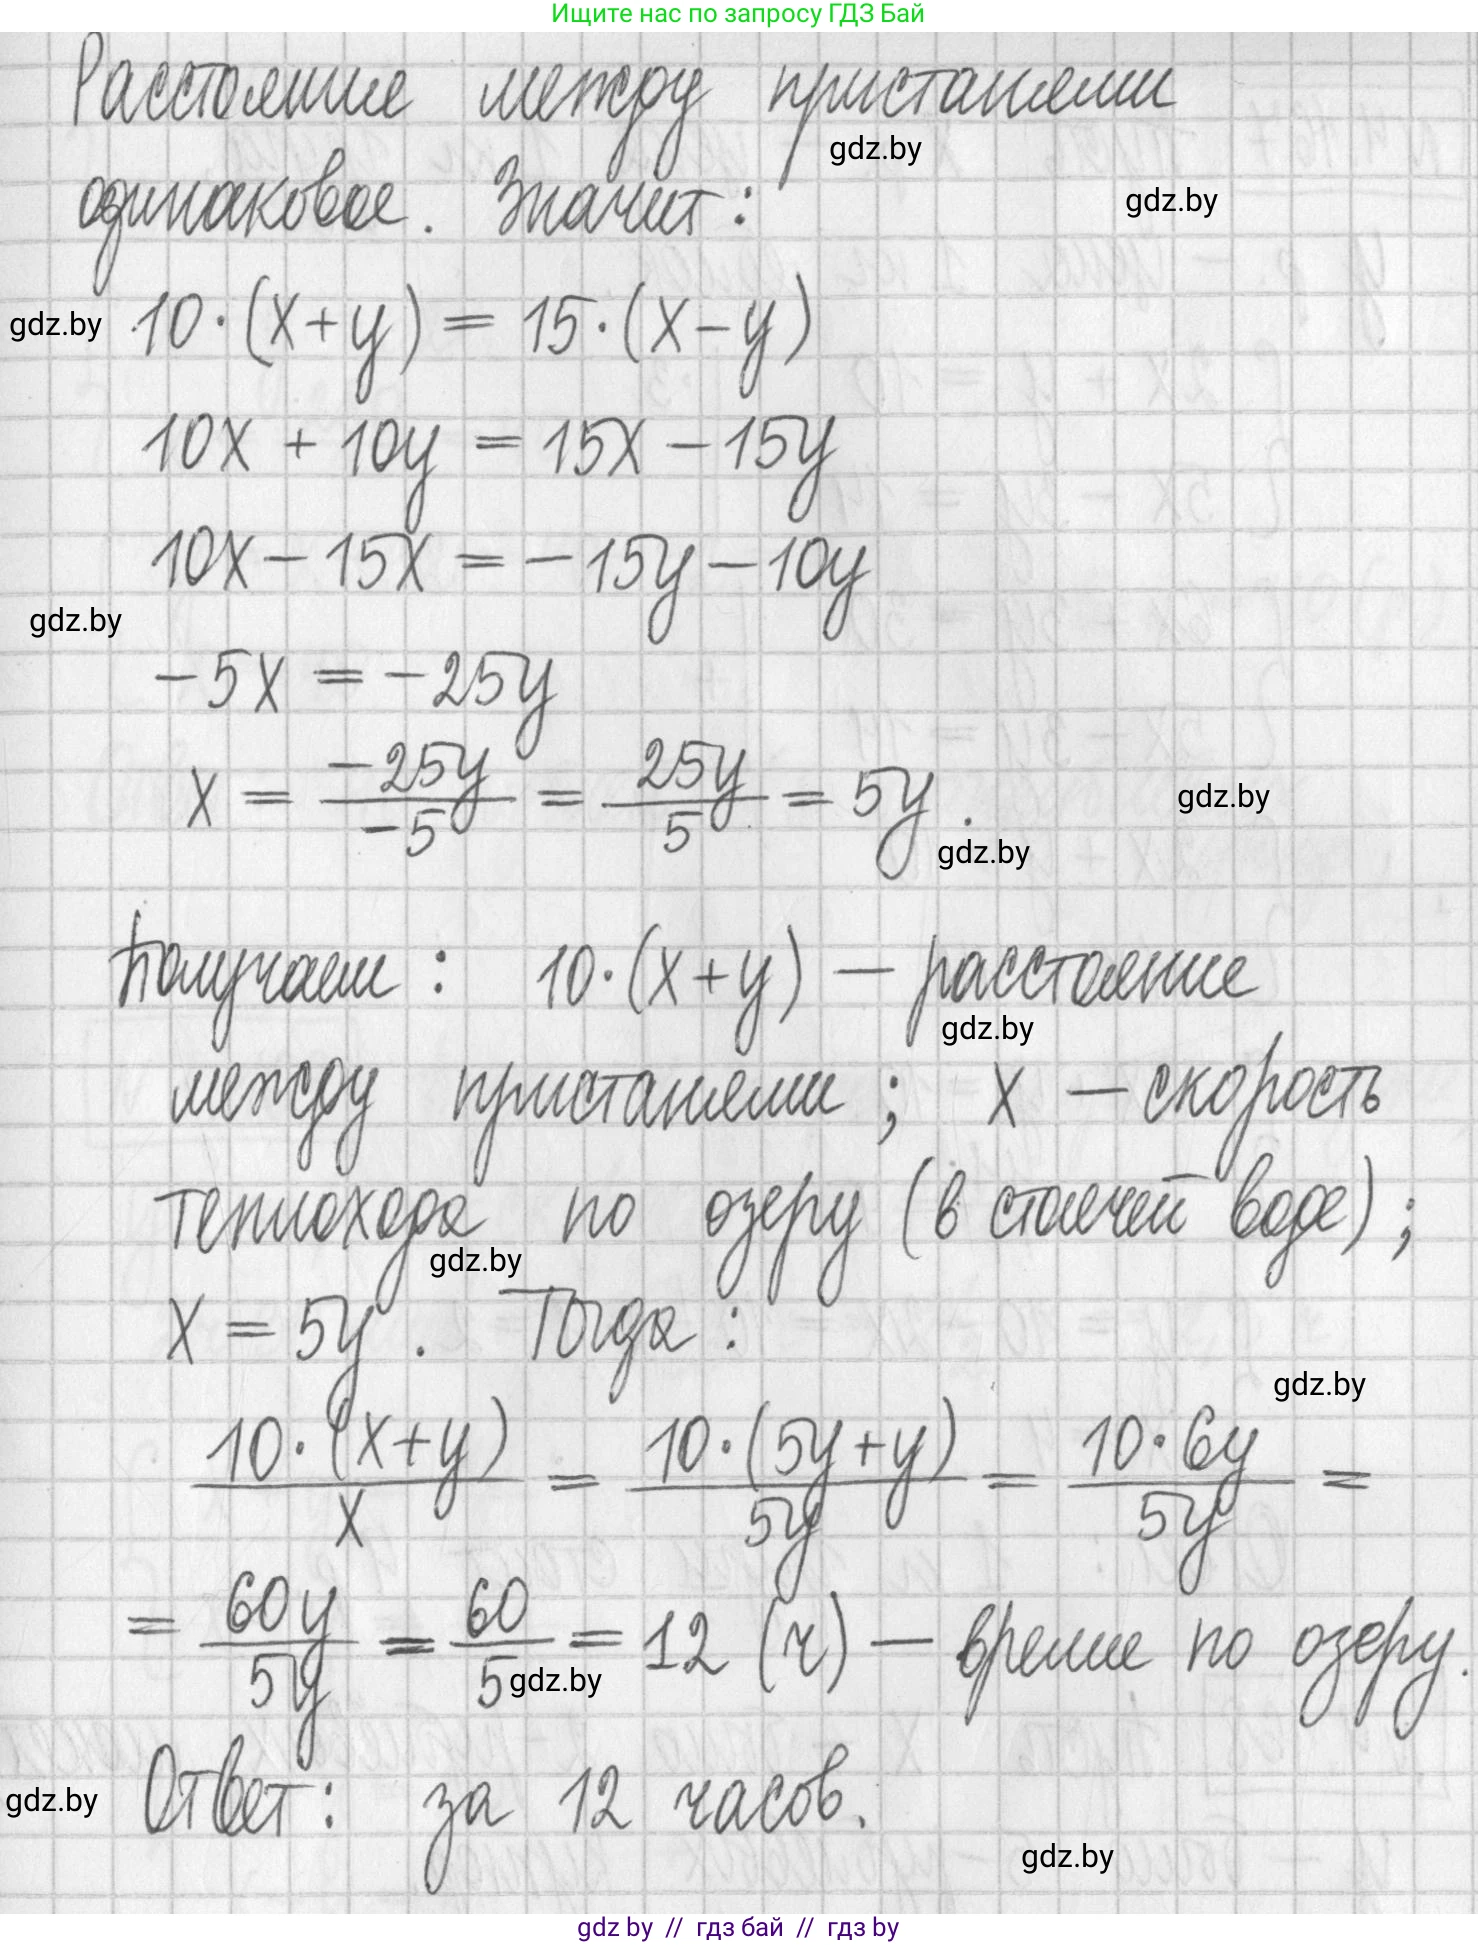 Ищите нас по запросу ГДЗ Бай
Расстояние между пристанями
gdz.by
одинаковое. Значит:
gdz.by
gdz.by
10·(x+y) = 15·(x-y)
10x + 10y = 15x - 15y
10x - 15x = -15y - 10y
gdz.by
-5x = -25y
x = -25y/-5 = 25y/5 = 5y.
gdz.by
gdz.by
Получаем: 10·(x+y) — расстояние
gdz.by
между пристанями; x — скорость
теплохода по озеру (в стоячей воде);
gdz.by
x = 5y. Тогда:
gdz.by
10·(x+y)/x = 10·(5y+y)/5y = 10·6y/5y =
= 60y/5y = 60/5 = 12 (ч) — время по озеру.
gdz.by
gdz.by
Ответ: за 12 часов.
gdz.by
gdz by // гдз бай // гдз by